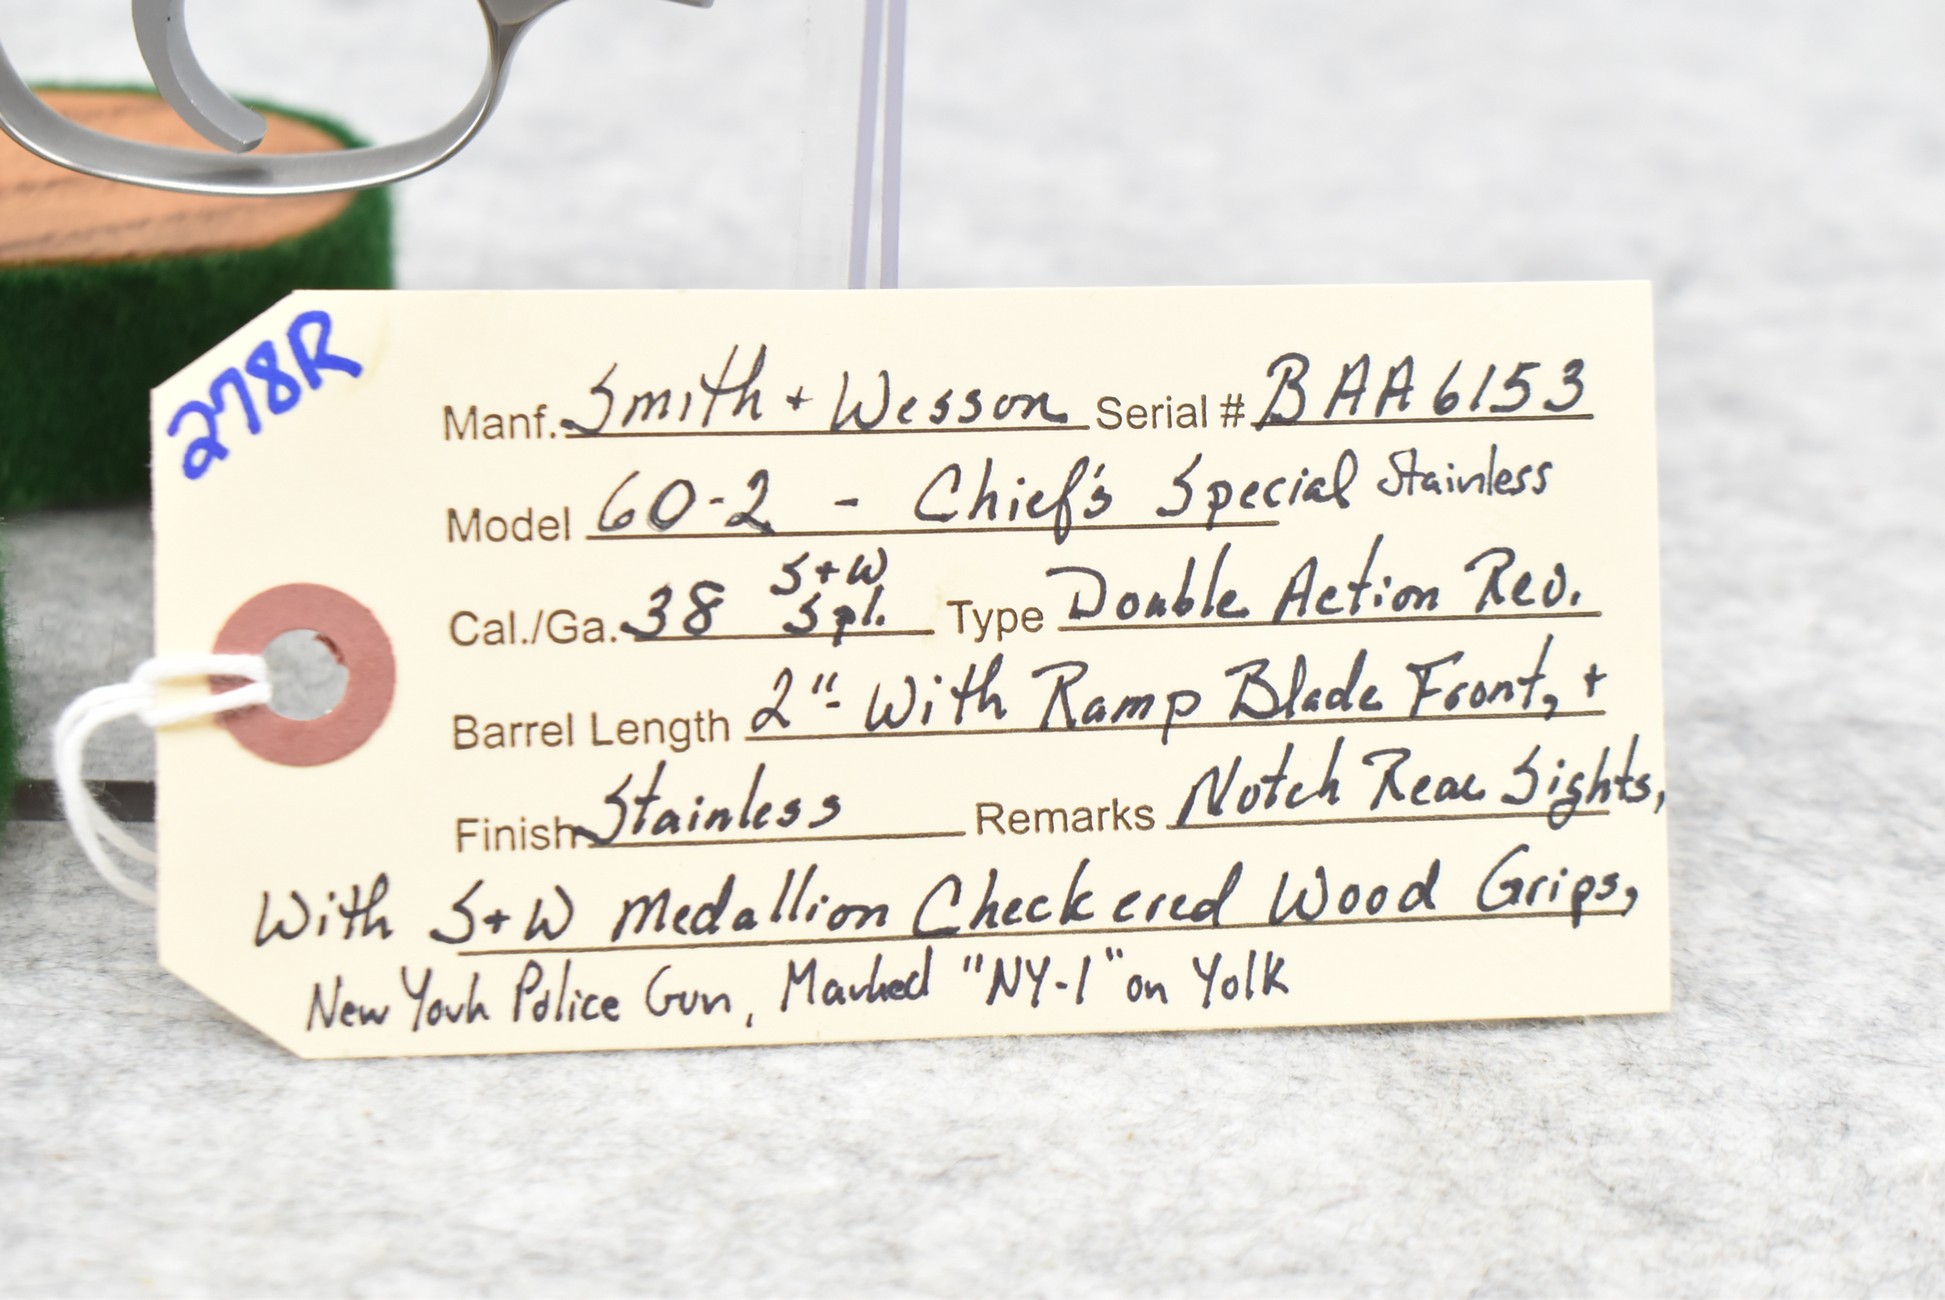 278R
Manf. Smith + Wesson Serial # BAA6153
Model 60-2 - Chief's Special Stainless
Cal./Ga. 38 S+W Spl. Type Double Action Rev.
Barrel Length 2" - With Ramp Blade Front, +
Finish Stainless Remarks Notch Rear Sights,
With S+W Medallion Checkered Wood Grips,
New York Police Gun, Marked "NY-1" on Yolk